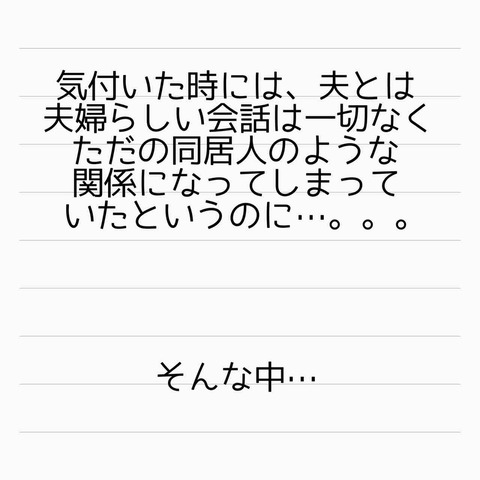 気付いた時には、夫とは
夫婦らしい会話は一切なく
ただの同居人のような
関係になってしまって
いたというのに…。。。
そんな中…